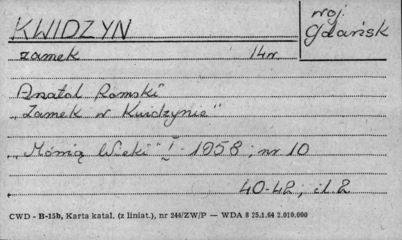 KWIDZYN
woj.
Gdańsk
zamek 14w.
Anatol Romski
"Zamek w Kwidzynie"
"Mówią Wieki" I 1958; nr 10
40-42; il. 2
CWD - B-15b, Karta katal. (z liniat.), nr 244/ZW/P — WDA 8 25.1.64 2.010.000